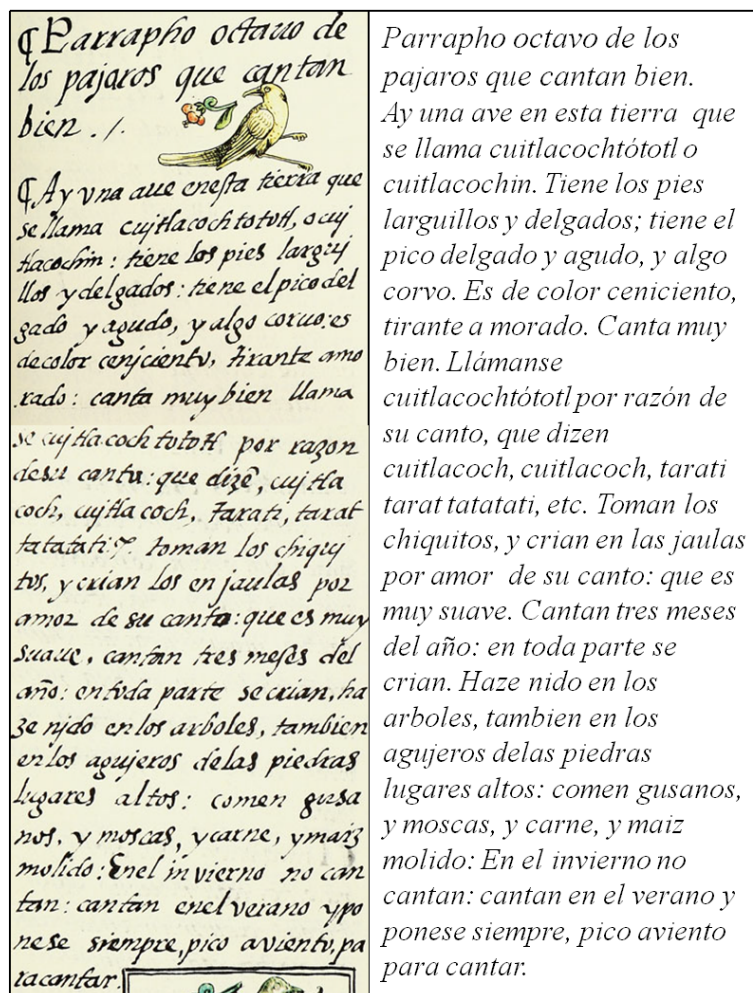 ¶ Parrapho octauo de
los pajaros que cantan
bien ./.
¶ Ay vna aue enesta tierra que
se llama cujtlacochtototl, o cuj
tlacochin: tiene los pies larguj
llos y delgados: tiene el pico del
gado y agudo, y algo coruo: es
decolor cenjciento, tirante amo
rado: canta muy bien llama
se cujtlacochtototl por razon
desu canto: que dizẽ, cujtla
coch, cujtlacoch, tarati, tarat
tatatati. toman los chiquj
tos, y crian los en jaulas por
amor de su canto: que es muy
suaue, cantan tres meses del
año: entoda parte se crian, ha
ze njdo enlos arboles, tambien
enlos agujeros delas piedras
lugares altos: comen gusa
nos, y moscas, y carne, y maiz
molido: Enel invierno no can
tan: cantan enel verano ypo
nese siempre, pico aviento, pa
racantar.
Parrapho octavo de los
pajaros que cantan bien.
Ay una ave en esta tierra que
se llama cuitlacochtótotl o
cuitlacochin. Tiene los pies
larguillos y delgados; tiene el
pico delgado y agudo, y algo
corvo. Es de color ceniciento,
tirante a morado. Canta muy
bien. Llámanse
cuitlacochtótotl por razón de
su canto, que dizen
cuitlacoch, cuitlacoch, tarati
tarat tatatati, etc. Toman los
chiquitos, y crian en las jaulas
por amor de su canto: que es
muy suave. Cantan tres meses
del año: en toda parte se
crian. Haze nido en los
arboles, tambien en los
agujeros delas piedras
lugares altos: comen gusanos,
y moscas, y carne, y maiz
molido: En el invierno no
cantan: cantan en el verano y
ponese siempre, pico aviento
para cantar.